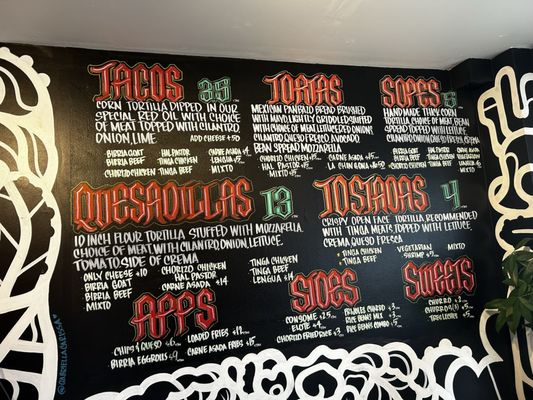 TACOS 3.5
CORN TORTILLA DIPPED IN OUR
SPECIAL RED OIL WITH CHOICE
OF MEAT TOPPED WITH CILANTRO
ONION, LIME ADD CHEESE +.50
BIRRIA GOAT HAL PASTOR CARNE ASADA
BIRRIA BEEF TINGA CHICKEN LENGUA
CHORIZO CHICKEN TINGA BEEF MIXTO
TORTAS
MEXICAN PAN BAZO BREAD BRUSHED
WITH MAYO, LIGHTLY GRIDDLED STUFFED
WITH CHOICE OF MEAT, LETTUCE, RED ONIONS,
CILANTRO, QUESO FRESCO, AVOCADO,
BEAN SPREAD, MOZZARELLA
CHORIZO CHICKEN CARNE ASADA
HAL PASTOR LA CHIN GONA
MIXTO
SOPES
HANDMADE THICK CORN
TORTILLA CHOICE OF MEAT, BEAN
SPREAD TOPPED WITH LETTUCE,
CILANTRO, QUESO FRESCO, CREMA
BIRRIA GOAT HAL PASTOR CARNE ASADA
BIRRIA BEEF TINGA CHICKEN LENGUA
CHORIZO CHICKEN TINGA BEEF MIXTO
QUESADILLAS 13
10 INCH FLOUR TORTILLA STUFFED WITH MOZZARELLA
CHOICE OF MEAT, WITH CILANTRO, ONION, LETTUCE,
TOMATO, SIDE OF CREMA
ONLY CHEESE +10 CHORIZO CHICKEN TINGA CHICKEN
BIRRIA GOAT HAL PASTOR TINGA BEEF
BIRRIA BEEF CARNE ASADA +14 LENGUA +14
MIXTO
TOSTADAS 4
CRISPY OPEN FACE TORTILLA, RECOMMENDED
WITH TINGA MEATS, TOPPED WITH LETTUCE,
CREMA QUESO FRESCA
TINGA CHICKEN VEGETARIAN MIXTO
TINGA BEEF SHRIMP
APPS
CHIPS & QUESO LOADED FRIES
BIRRIA EGGROLLS CARNE ASADA FRIES
SIDES
CONSOME FRIJOLES CHARRO
ELOTE RICE BEANS MIX
CHORILO FRIED RICE RICE BEANS COMBO
SWEETS
CHURRO
CHURROS
TRES LECHES
@GABRIELLACAROSSA